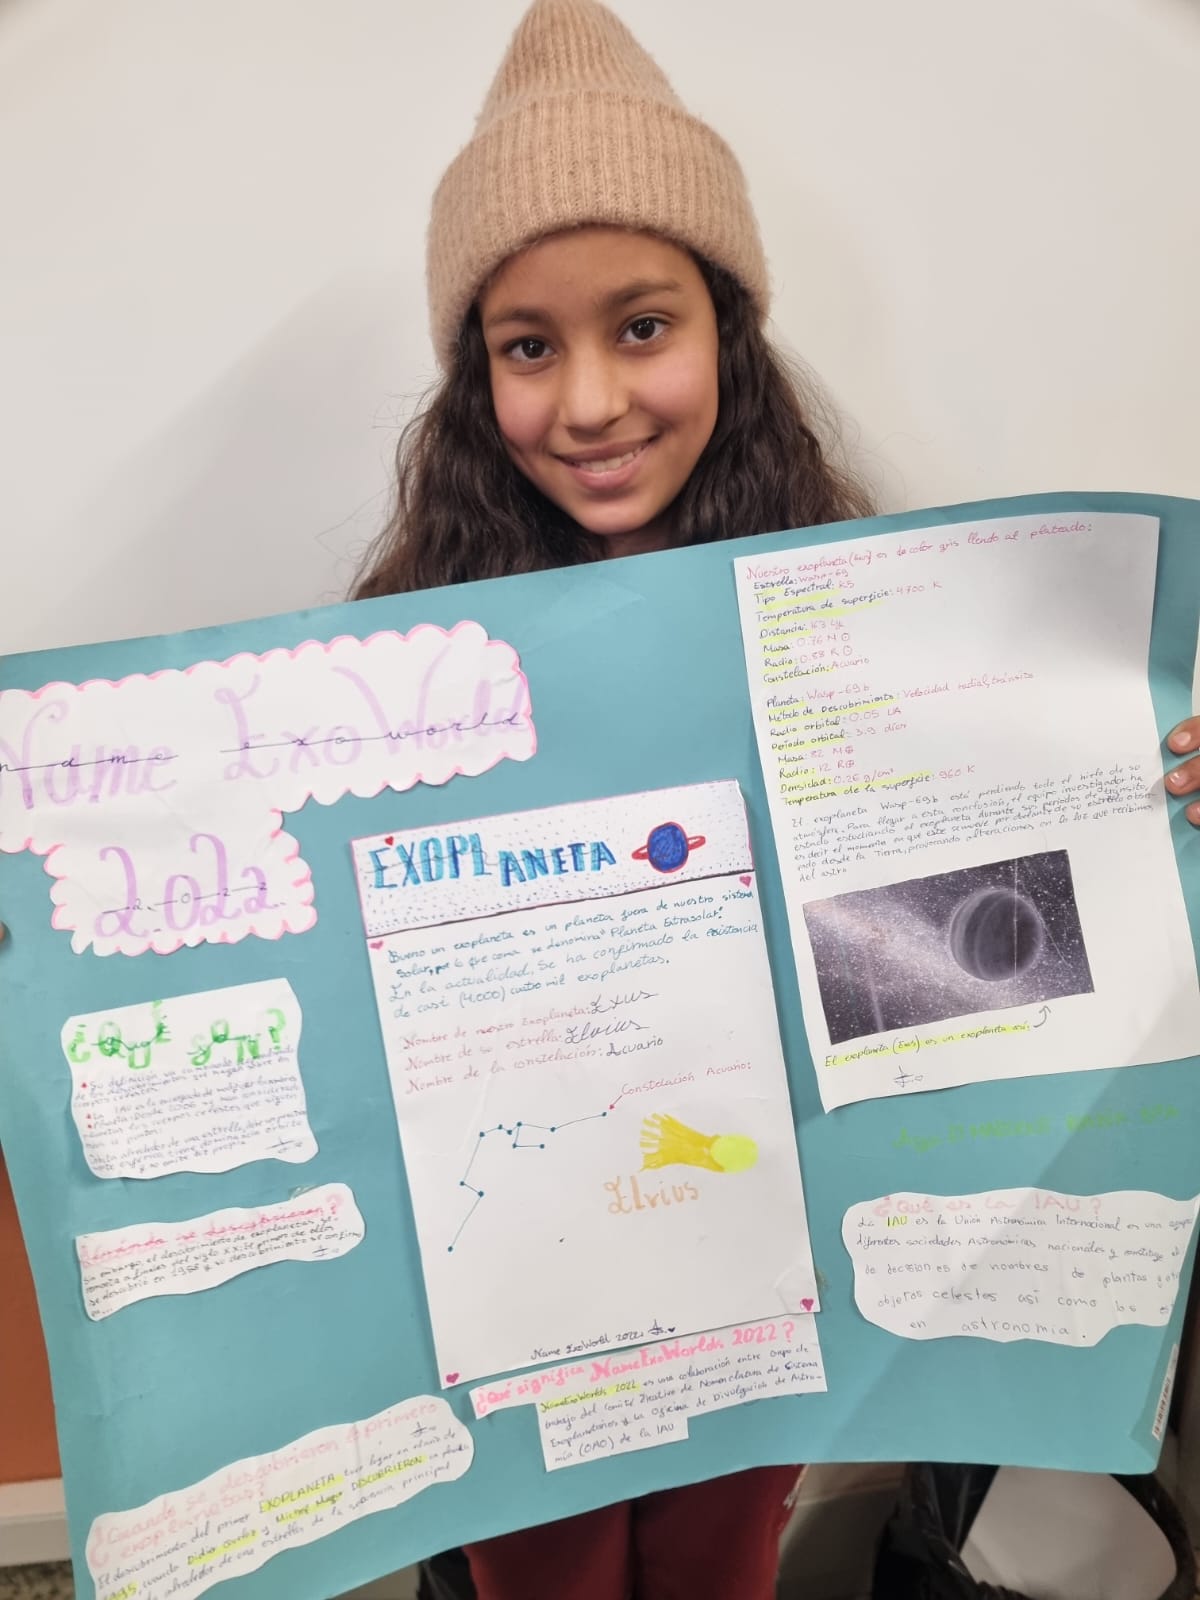 Name ExoWorld
name exoworld
2.022.
2-0-2-2
¿QUÉ SON?
• Su definición ha cambiado
de los descubrimientos que hagan sobre los
cuerpos celestes.
• La IAU es la encargada de modificar los nombres
planeta. Desde 2006 se han considerado
planetas los cuerpos celestes que siguen
Orbita alrededor de una estrella, debe un
esférica, tiene dominancia orbita
y no emite luz propia
¿Cuándo se descubrieron?
Sin embargo, el descubrimiento de exoplanetas se
remonta a finales del siglo XX; El primero de ellos
se descubrió en 1988 y su descubrimiento se confirmo
en...
¿Cuando se descubrieron el primero
exoplanetas?
El descubrimiento del primer EXOPLANETA tuvo lugar en el año de
1995, cuando Didier Queloz y Michel Mayor DESCUBRIERON un planeta
alrededor de una estrella de la secuencia principal
EXOPLANETA
Bueno un exoplaneta es un planeta fuera de nuestro sistema
solar, por lo que como se denomina "Planeta Extrasolar".
En la actualidad, Se ha confirmado la existencia
de casi (4.000) cuatro mil exoplanetas.
Nombre de nuestro Exoplaneta: Exus
Nombre de su estrella: Elvius
Nombre de la constelación: Acuario
Constelación Acuario:
Elvius
Name ExoWorld 2022.
¿Qué significa NameExoWorlds 2022?
NameExoWorlds 2022 es una colaboración entre Grupo de
trabajo del Comité Ejecutivo de Nomenclatura de Sistema
Exoplanetarios y la Oficina de Divulgación de Astro-
mía (OAO) de la IAU
Nuestro exoplaneta (Exus) es de color gris llendo al plateado:
Estrella: Wasp-69
Tipo Espectral: K5
Temperatura de superficie: 4700 K
Distancia: 163 Ly
Masa: 0.76 M ⊙
Radio: 0.88 R ⊙
Constelación: Acuario
Planeta: Wasp-69b
Método de Descubrimiento: Velocidad radial, tránsito
Radio orbital: 0.05 UA
Período orbital: 3.9 días
Masa: 82 M⊕
Radio: 12 R⊕
Densidad: 0.26 g/cm³
Temperatura de la superficie: 960 K
El exoplaneta Wasp-69b está perdiendo todo el hielo de su
atmósfera. Para llegar a esta conclusión, el equipo investigador ha
estado estudiando al exoplaneta durante sus períodos de tránsito,
es decir el momento en que este se mueve por delante de su estrella obser-
vado desde la Tierra, provocando alteraciones en la luz que recibimos
del astro
El exoplaneta (Exus) es un exoplaneta así.
¿Qué es la IAU?
La IAU es la Unión Astronómica Internacional es una
diferentes sociedades Astronómicas nacionales y constituye el
de decisiones de nombres de plantas y
objetos celestes así como los
en astronomía.